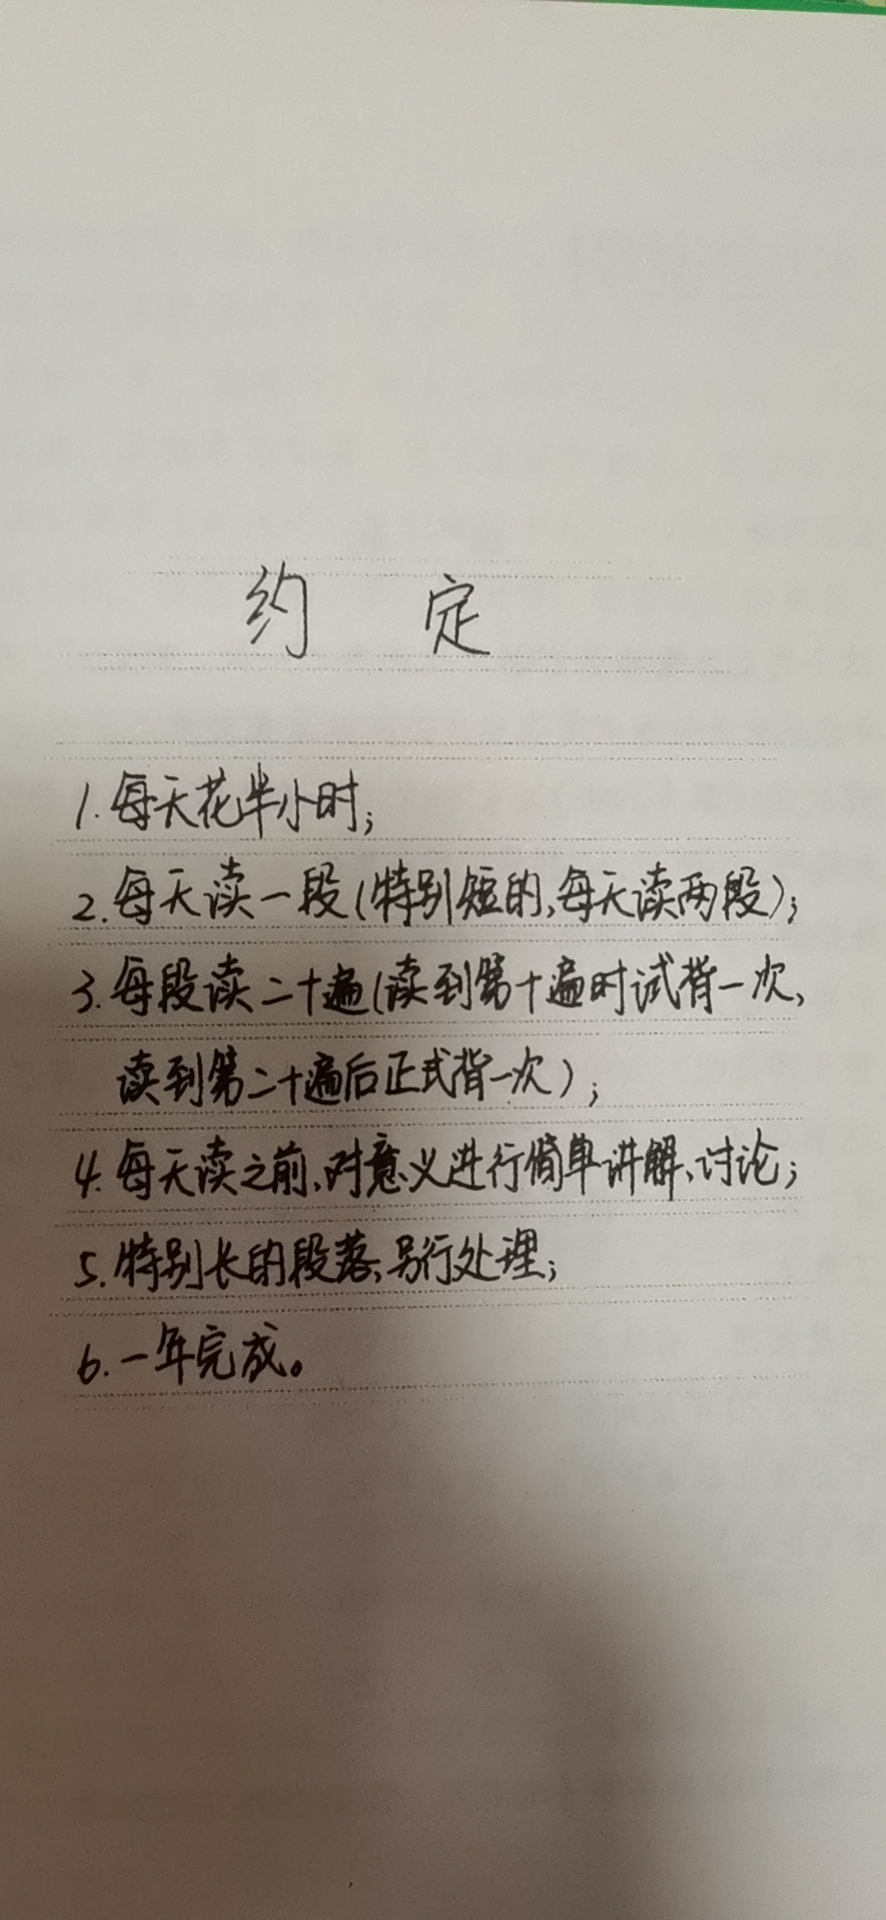 约 定
1. 每天花半小时;
2. 每天读一段(特别短的,每天读两段);
3. 每段读二十遍(读到第十遍时试背一次,
读到第二十遍后正式背一次);
4. 每天读之前,对意义进行简单讲解、讨论;
5. 特别长的段落,另行处理;
6. 一年完成。